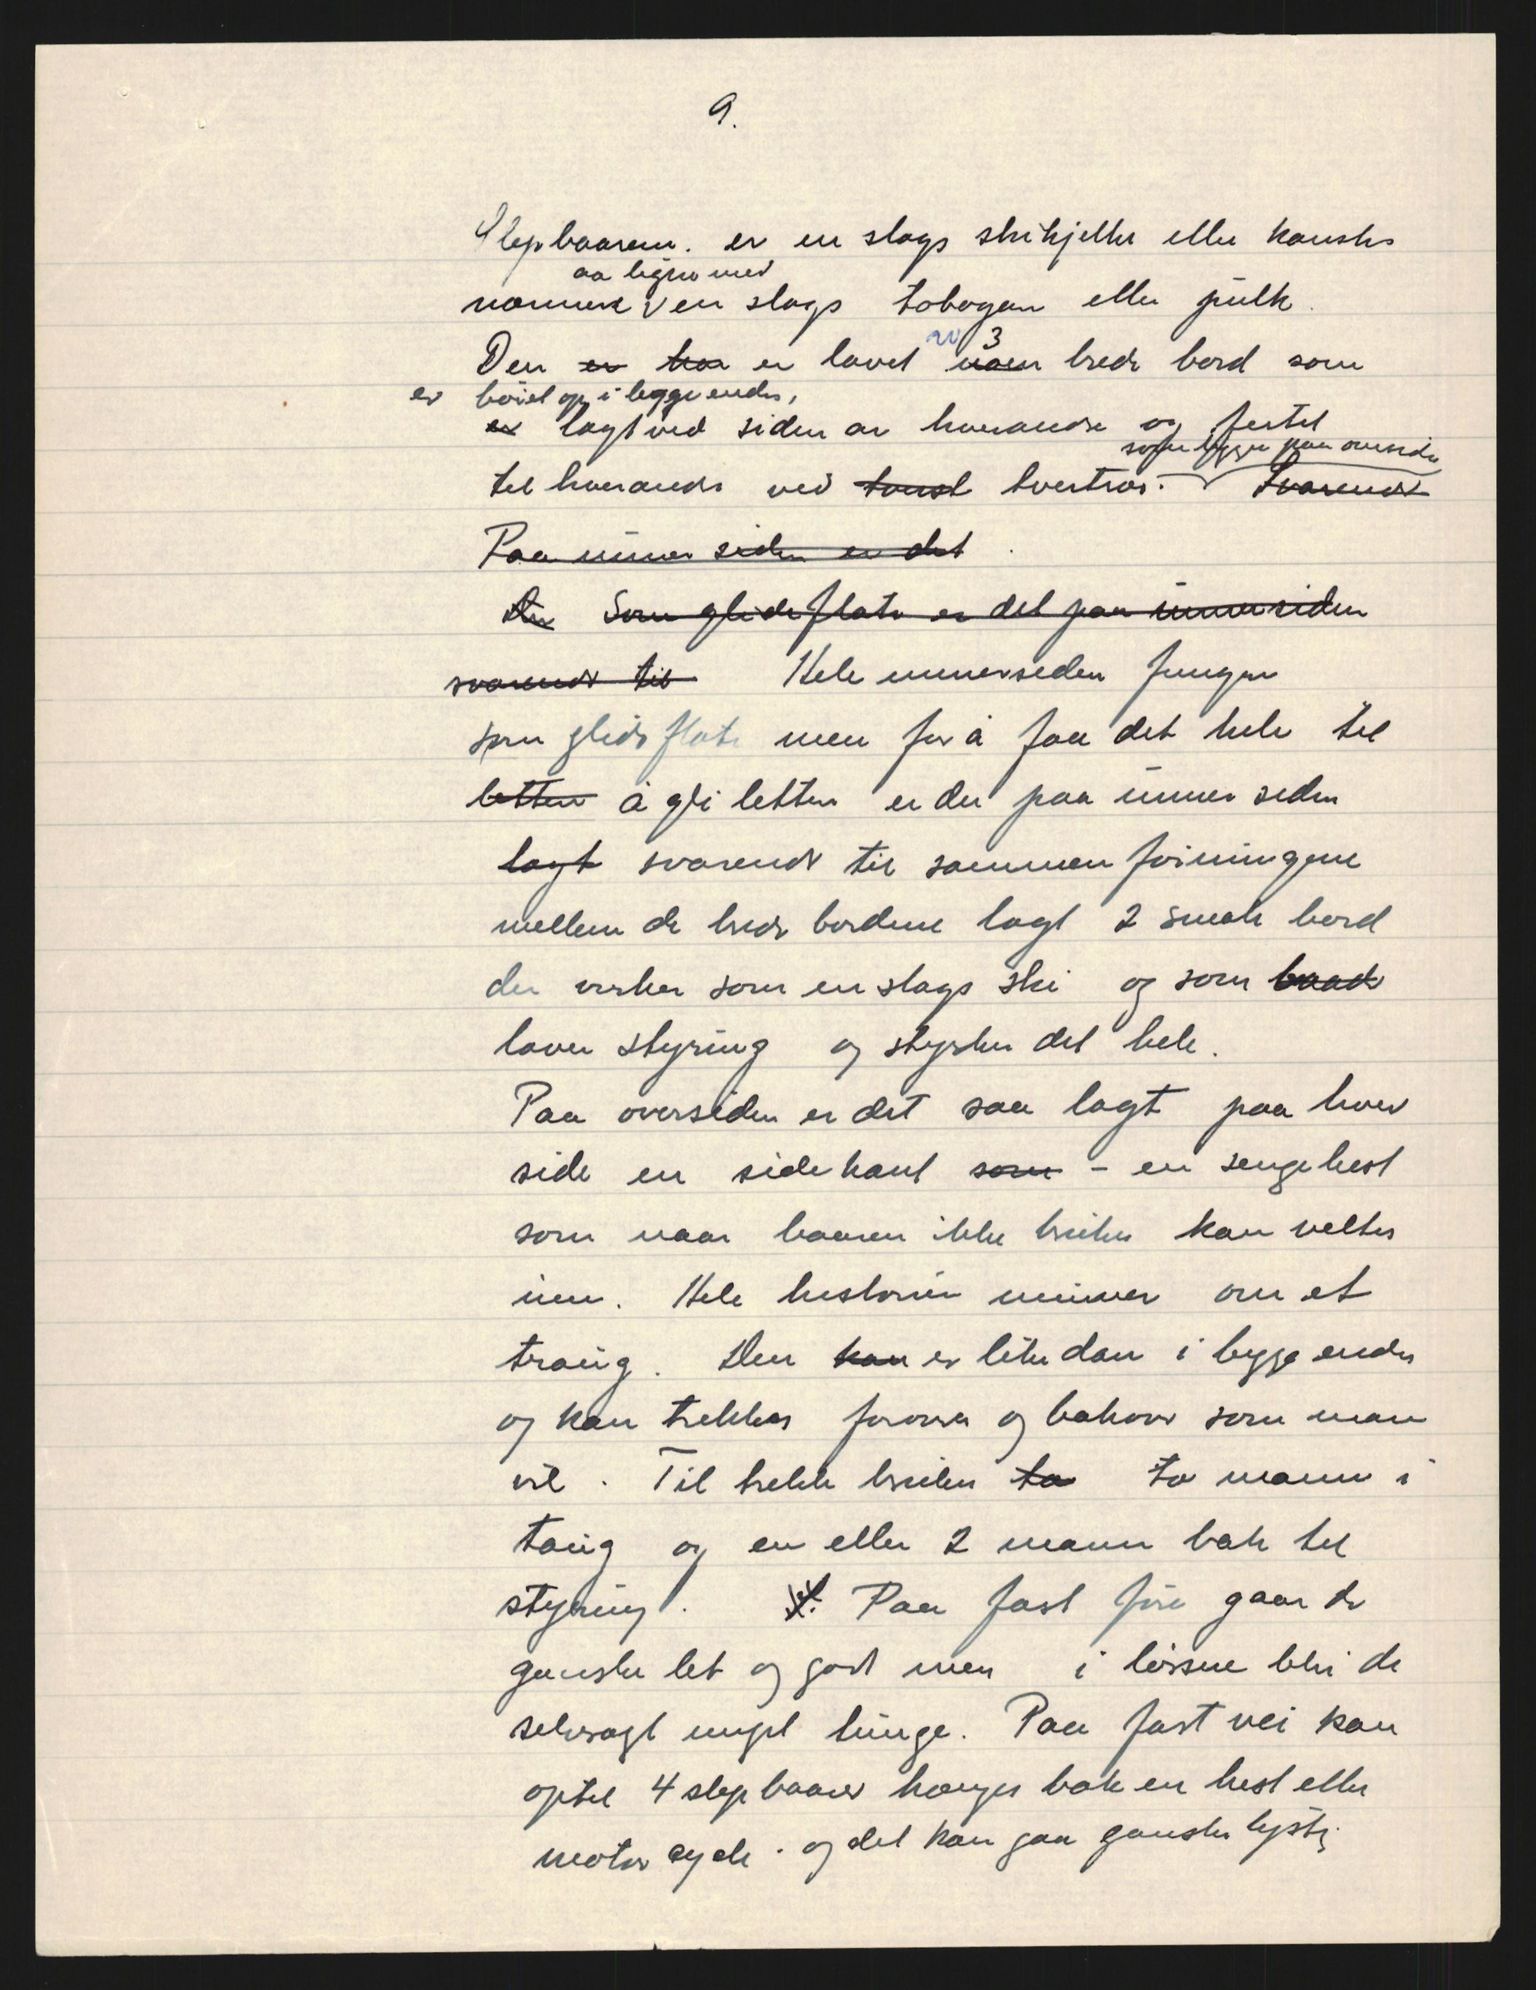 9.
Slepbaaren. er en slags skikjelke eller kanske
aa ligne med
nærmere en slags tobogan eller pulk.
av 3
Den er har er lavet noen brede bord som
er bøiet op i begge ender,
er lagt ved siden av hverandre og festet
som ligger paa oversiden
til hverandre ved tverst tvertrær. Svarende
Paa unner siden er det
Den Som glideflate er det paa unnersiden
svarende til Hele unnersiden fungerer
som glideflate men for å faa det hele til
lettere å gli lettere er der paa unner siden
lagt svarende til sammenføiningene
mellem de brede bordene lagt 2 smale bord
der virker som en slags ski og som baade
laver styring og styrker det hele.
Paa oversiden er det saa lagt paa hver
side en sidekant som - en sengehest
som naar baaren ikke brukes kan veltes
inn. Hele historien minner om et
traug. Den kan er likedan i begge ender
og kan trekkes forover og bakover som man
vil. Til trekk brukes to to mann i
taug og en eller 2 mann bak til
styring. Paa fast føre gaar de
ganske let og godt men i løssne blir de
selvsagt meget tunge. Paa fast vei kan
optil 4 slepbaarer hænges bak en hest eller
motor cycle. og det kan gaa ganske lystig